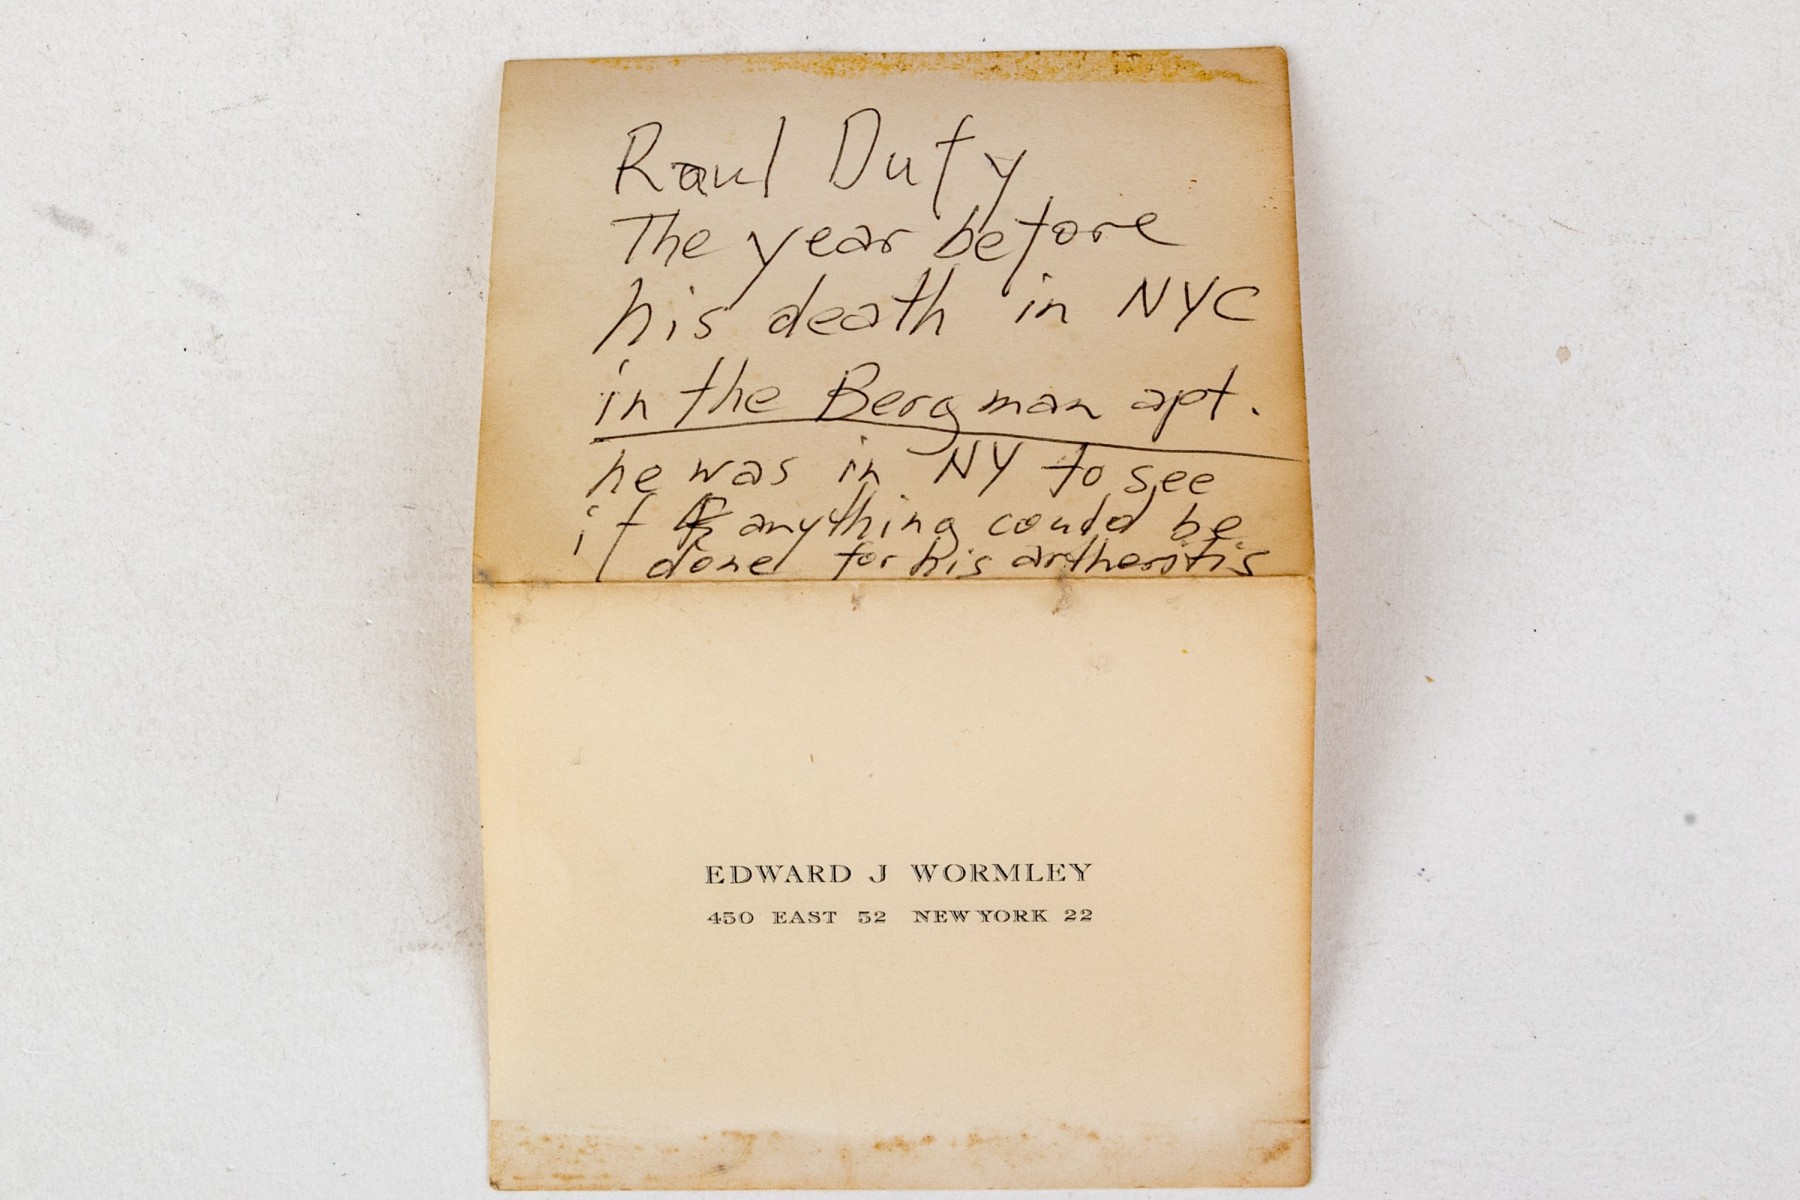 Raul Dufy
The year before
his death in NYC
in the Bergman apt.
he was in NY to see
if anything could be
done for his artheritis
EDWARD J WORMLEY
450 EAST 52 NEW YORK 22